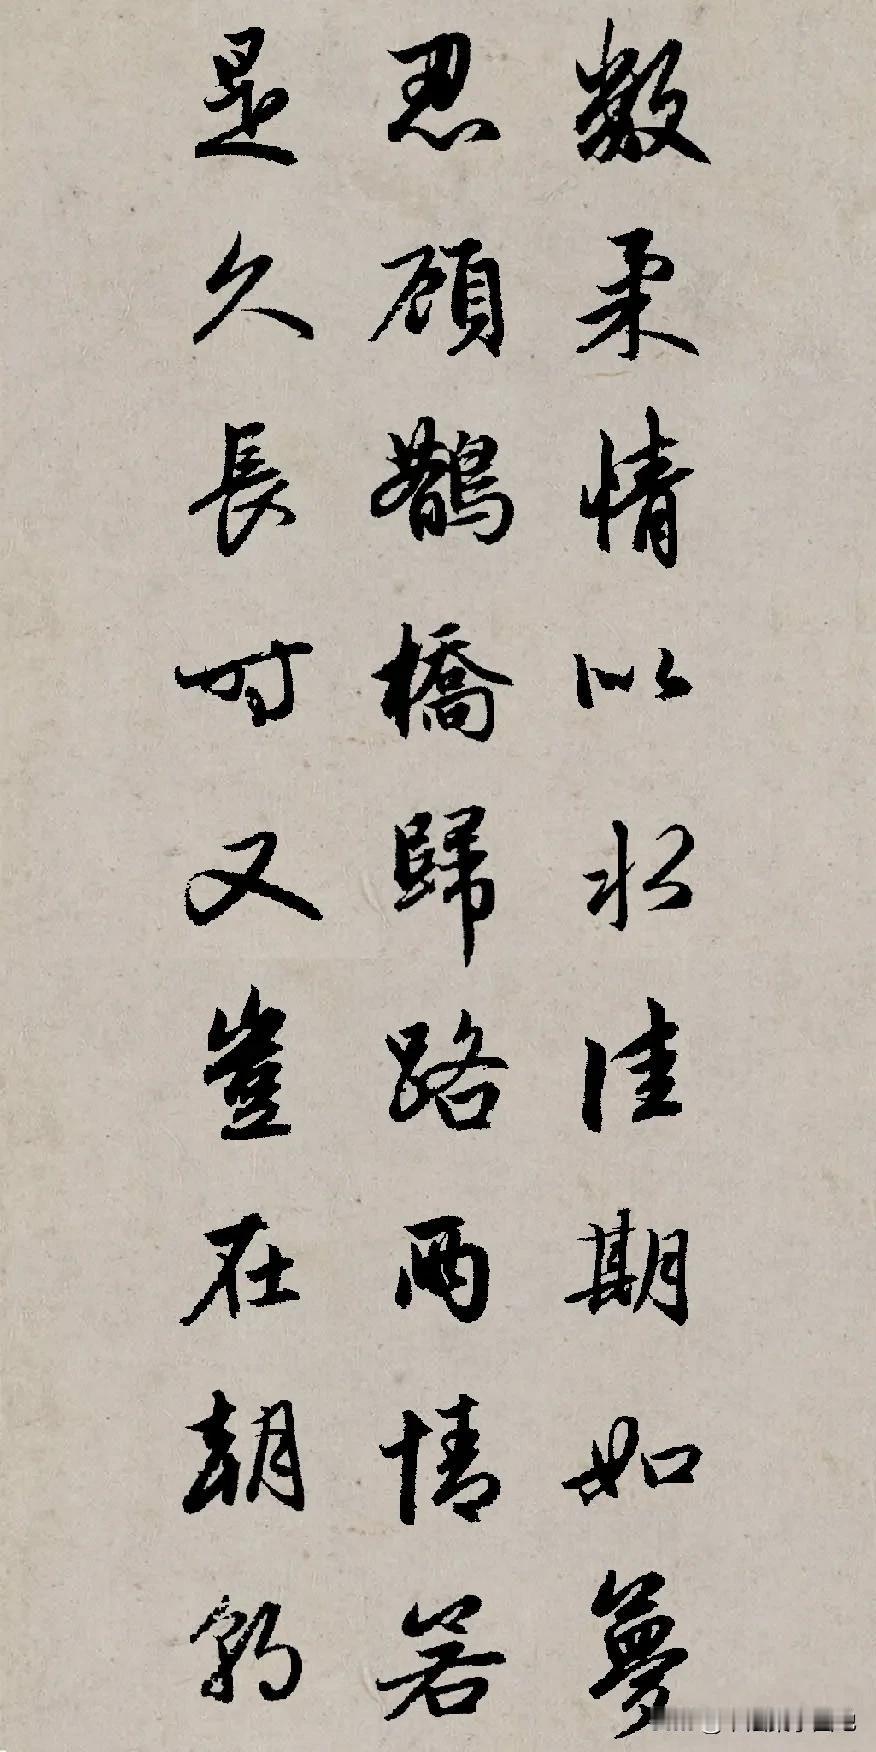 數柔情似水佳期如夢
忍顧鵲橋歸路兩情若
是久長時又豈在朝朝